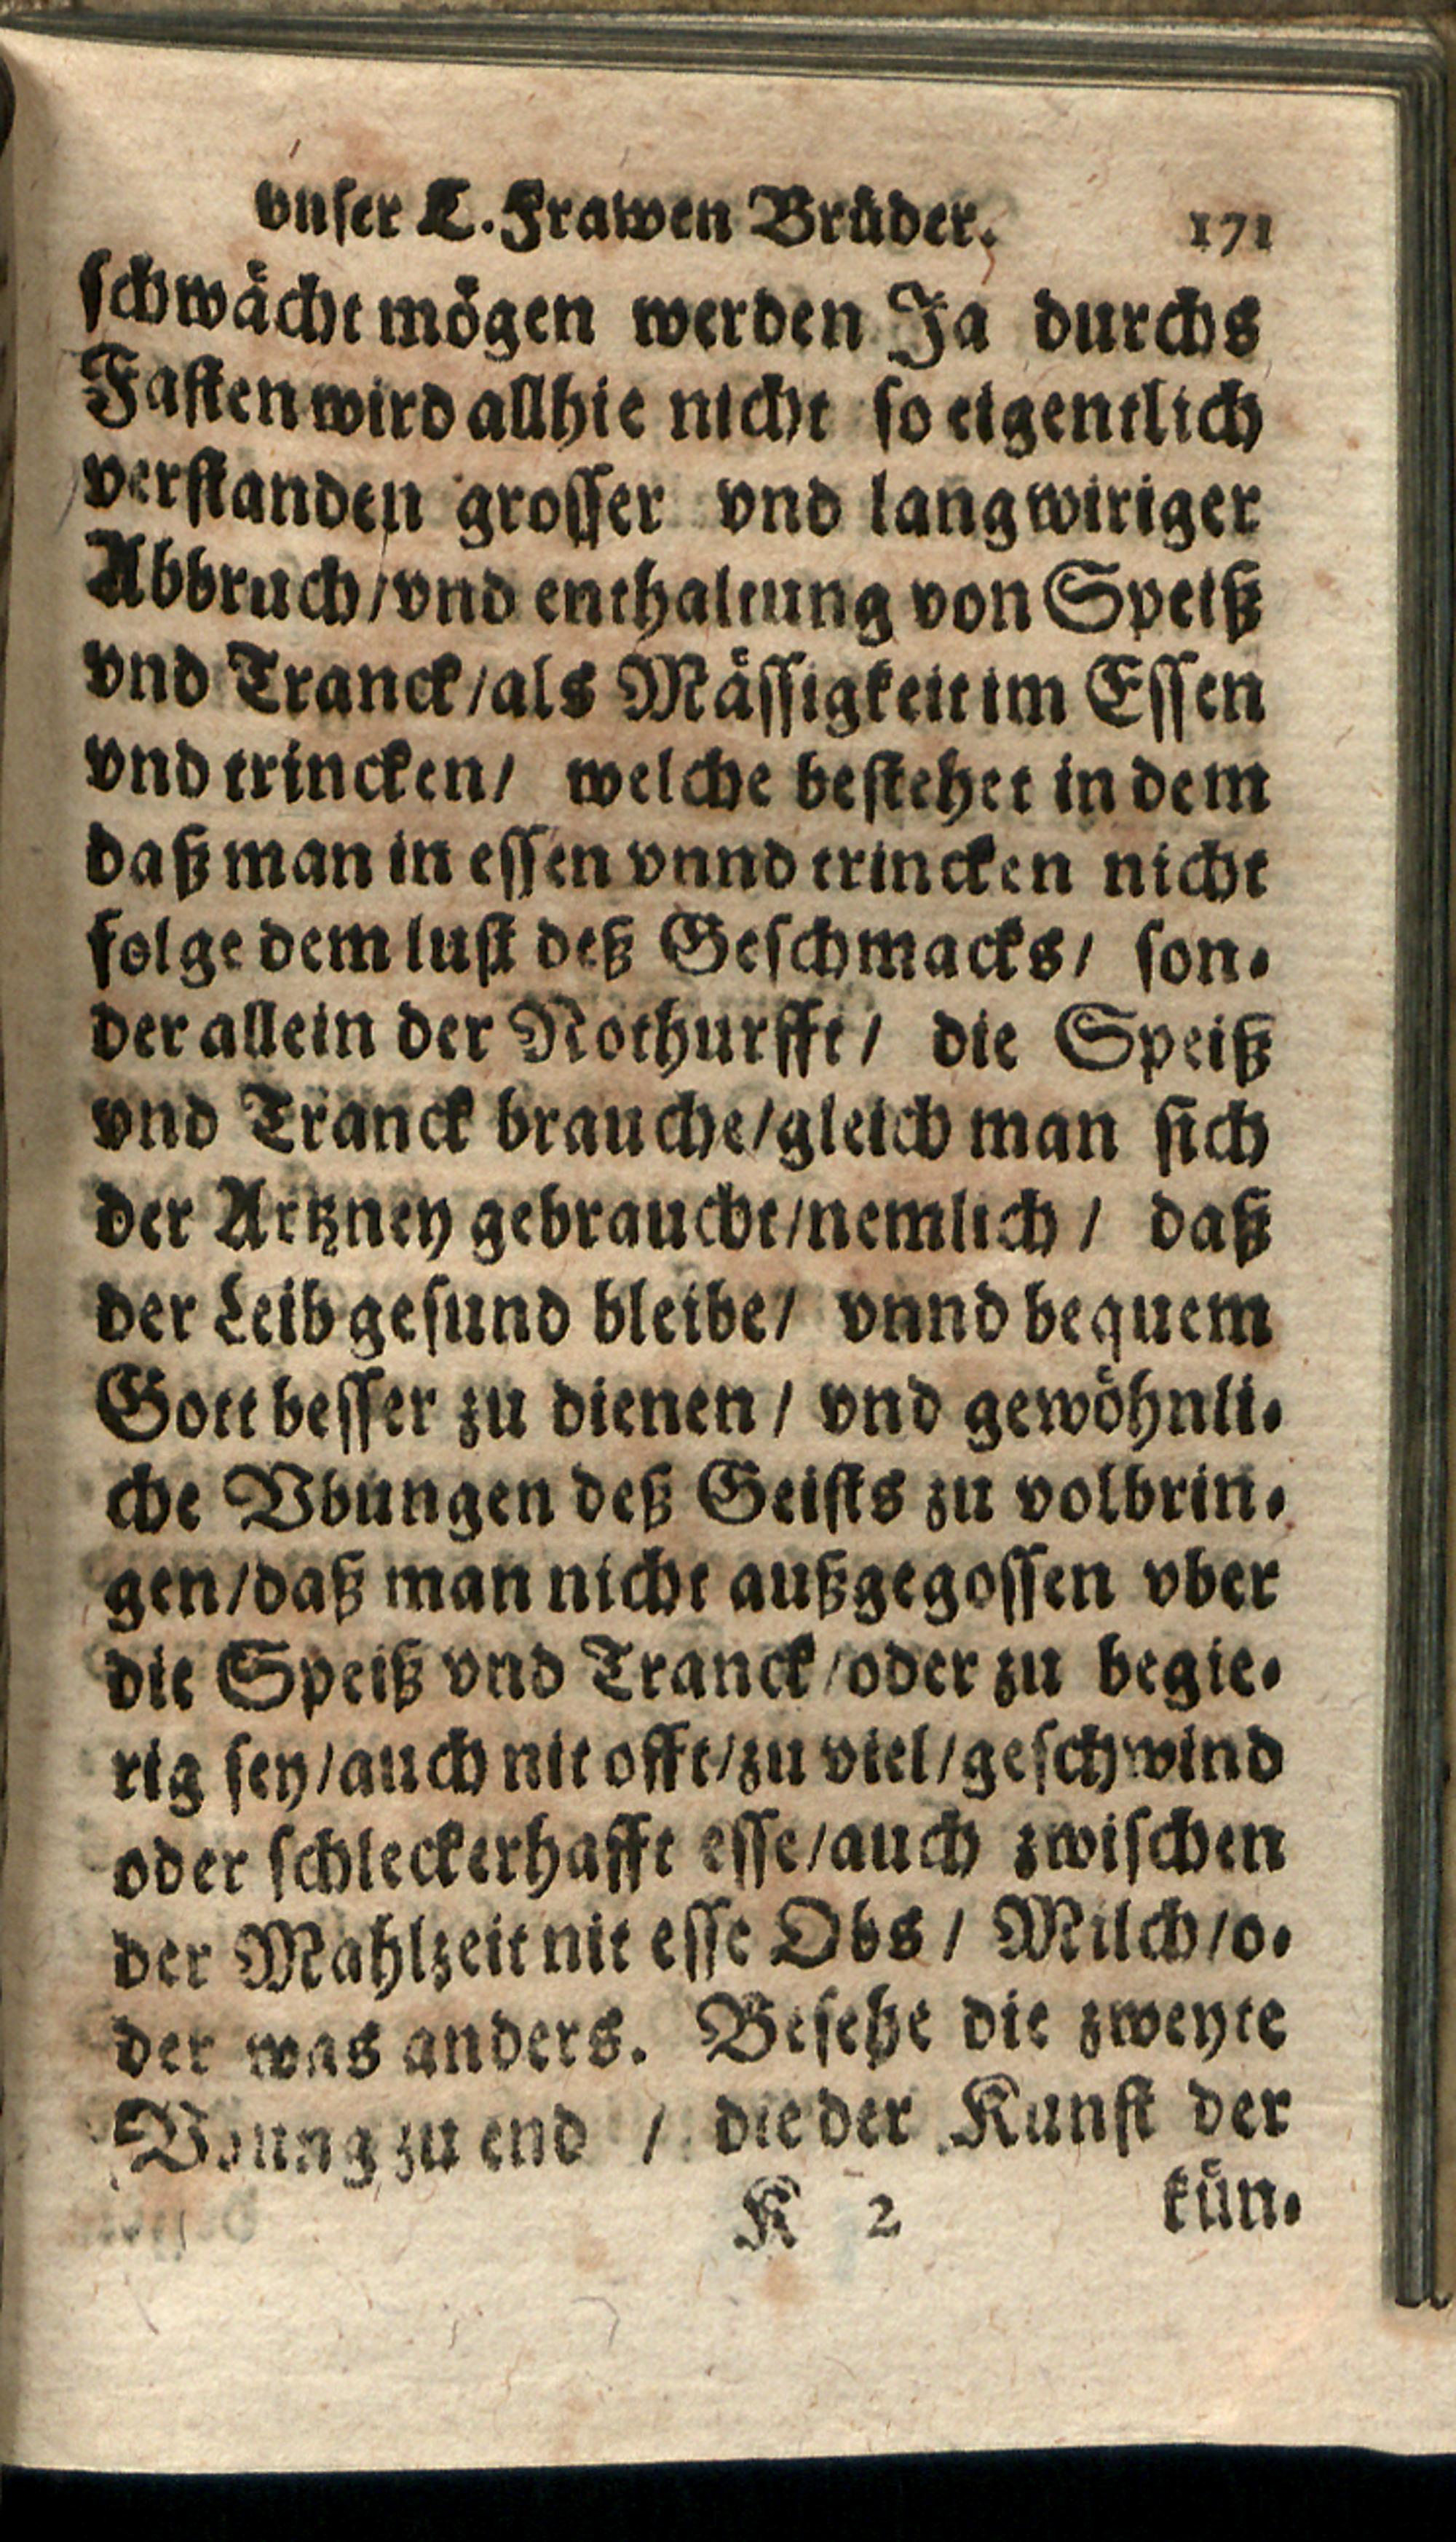 vnser L. Frawen Brüder. 171
schwächt mögen werden Ja durchs
Fasten wird allhie nicht so eigentlich
verstanden grosser vnd langwiriger
Abbruch/vnd enthaltung von Speiß
vnd Tranck/als Mässigkeit im Essen
vnd trincken/ welche bestehet in dem
daß man in essen vnnd trincken nicht
folge dem lust deß Geschmacks/ son-
der allein der Nothurfft/ die Speiß
vnd Tranck brauche/gleich man sich
der Artzney gebraucht/nemlich / daß
der Leib gesund bleibe/ vnnd bequem
Gott besser zu dienen / vnd gewöhnli-
che Vbungen deß Geists zu volbrin-
gen/daß man nicht außgegossen vber
die Speiß vnd Tranck/oder zu begie-
rig sey/auch nit offt/zu viel/geschwind
oder schleckerhafft esse/auch zwischen
der Mahlzeit nit esse Obs / Milch/o-
der was anders. Besehe die zweyte
Vbung zu end / die der Kunst der
K 2 kün-